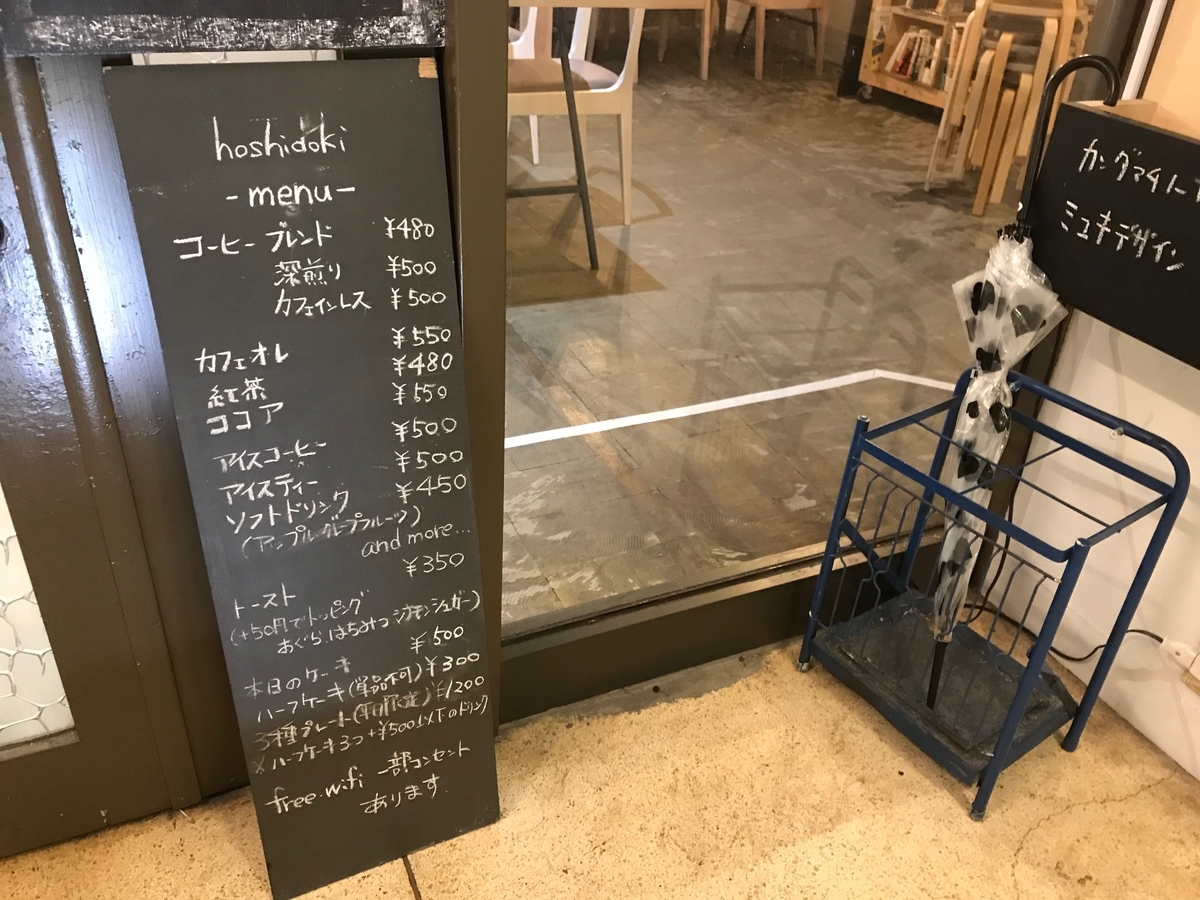 hoshidoki
-menu-
コーヒー ブレンド ¥480
深煎り ¥500
カフェインレス ¥500
カフェオレ ¥550
紅茶 ¥480
ココア ¥550
アイスコーヒー ¥500
アイスティー ¥500
ソフトドリンク ¥450
(アップル・グレープフルーツ)
and more...
トースト ¥350
(+50円でトッピング
あぐら はちみつ シナモンシュガー)
本日のケーキ ¥500
ハーフケーキ(単品不可) ¥300
3種プレート(平日限定) ¥1200
※ハーフケーキ3つ+¥500以下のドリンク
free wifi 一部コンセント
あります
カンダマチノート
ミユキデザイン